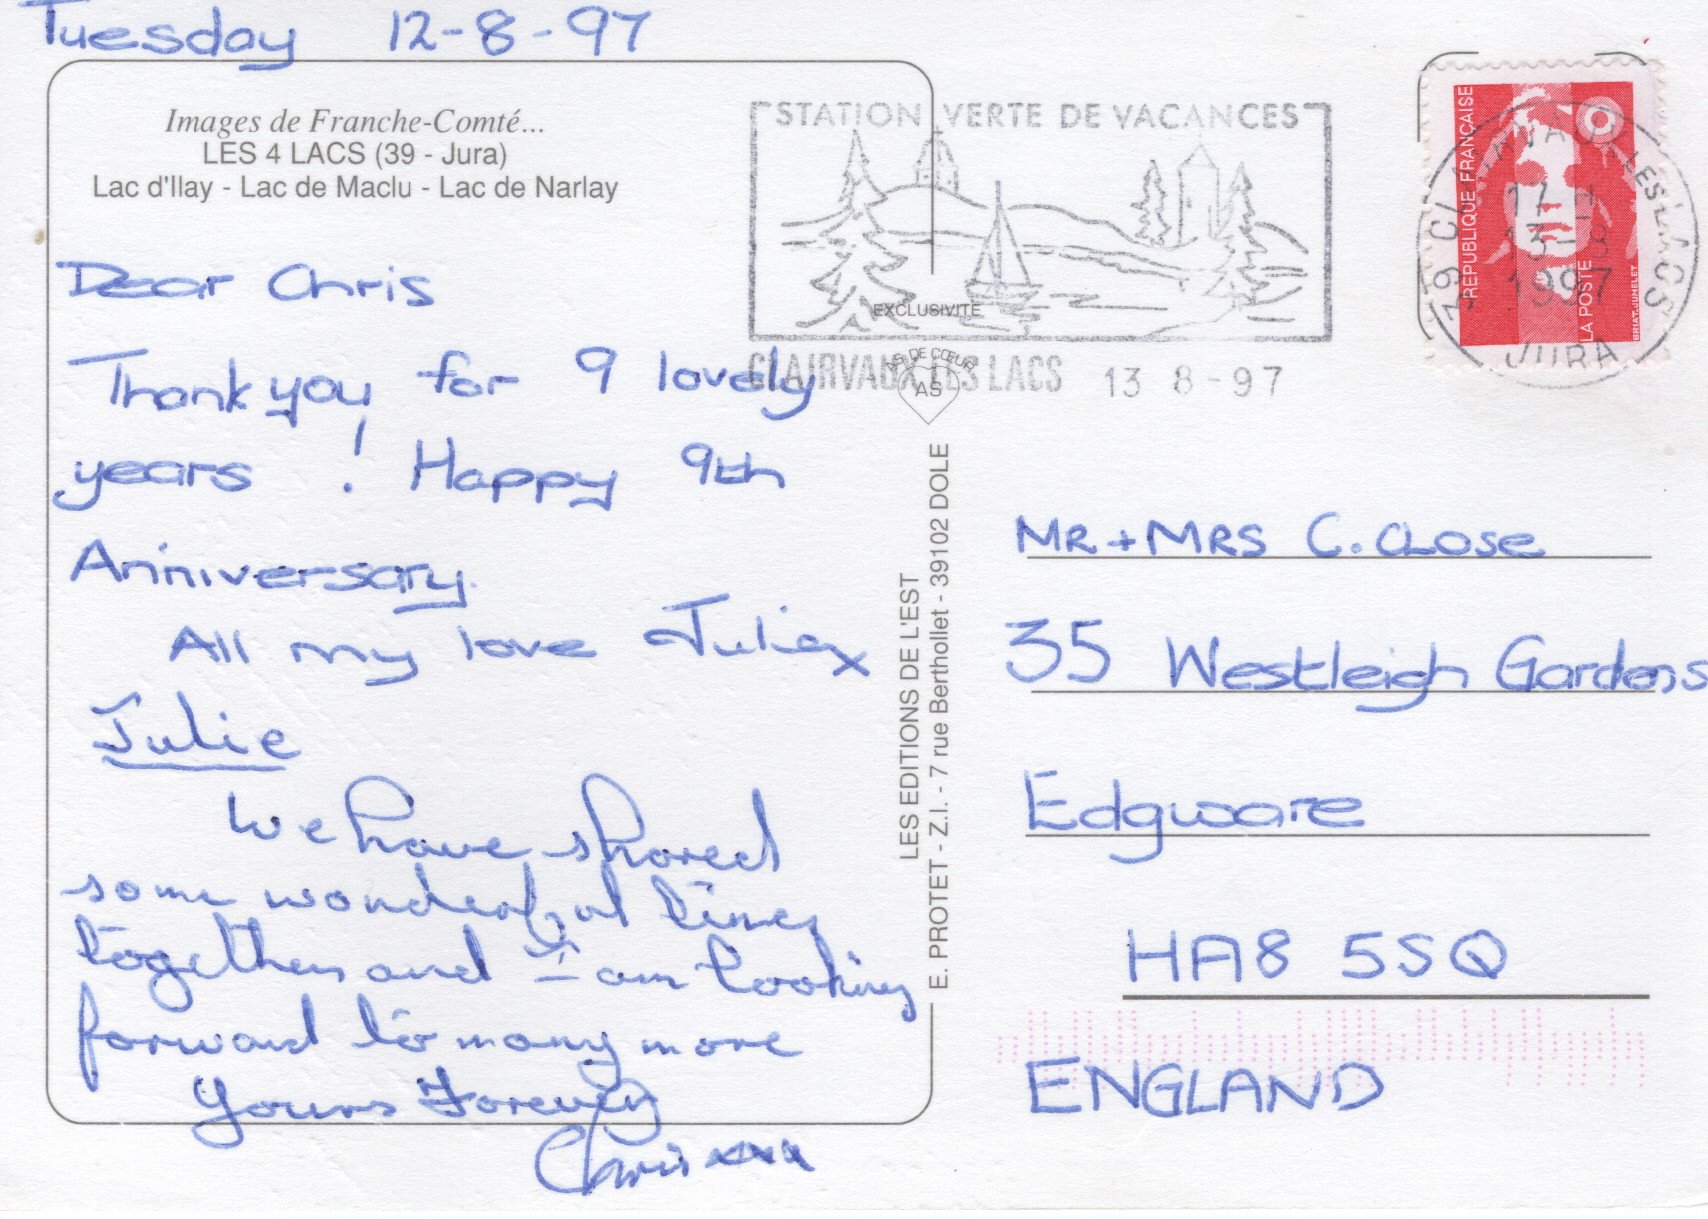 Tuesday 12-8-97
Images de Franche-Comté...
LES 4 LACS (39 - Jura)
Lac d'Ilay - Lac de Maclu - Lac de Narlay
Dear Chris
Thank you for 9 lovely
years ! Happy 9th
Anniversary.
All my love Julie x
Julie
We have shared
some wonderful times
together and I am looking
forward to many more
Yours Forever
Chris xxxx
STATION VERTE DE VACANCES
CLAIRVAUX LES LACS 13 8-97
EXCLUSIVITE
AS DE CŒUR
AS
LES EDITIONS DE L'EST
E. PROTET - Z.I. - 7 rue Berthollet - 39102 DOLE
REPUBLIQUE FRANÇAISE
LA POSTE
BRIAT-JUMELET
39 CLAIRVAUX LES LACS
17 H
13-8
1997
JURA
MR + MRS C. CLOSE
35 Westleigh Gardens
Edgware
HA8 5SQ
ENGLAND